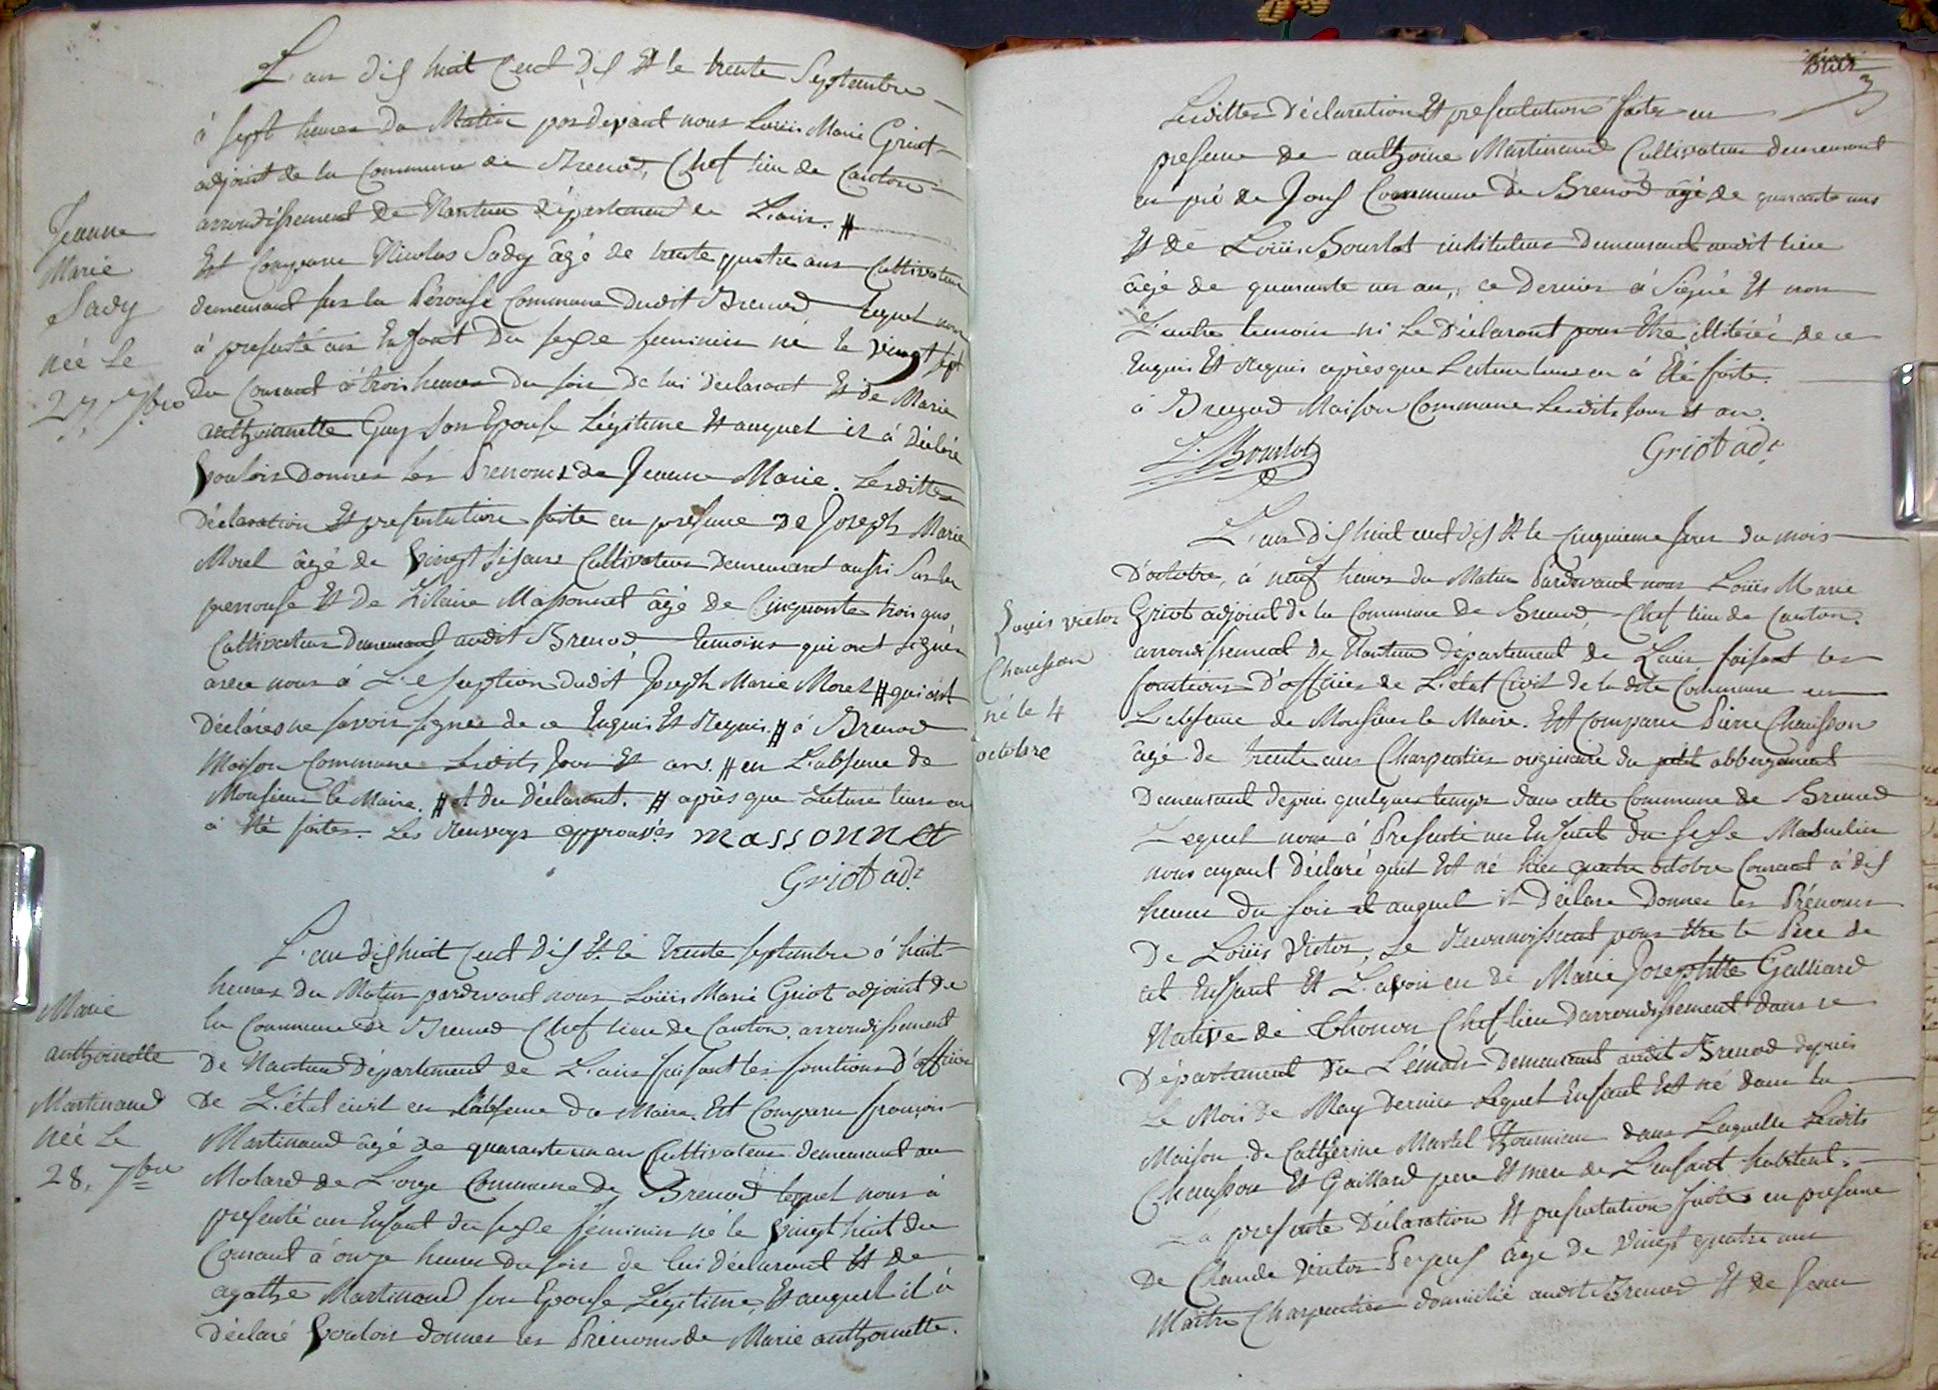 L'an dis huit Cent Dis Et le trente Septembre
à sept heures du Matin par devant nous Louis Marie Griot
adjoint de la Commune de Brenod, Chef lieu de Canton
arrondissement de Nantua département de L'ain. #
Est Comparu Nicolas Sady âgé de trente quatre ans Cultivateur
demeurant sur la Pérouse Commune dudit Brenod lequel nous
à presenté un Enfant Du sexe feminin né le vingt sept
du Courant à trois heures du soir de lui déclarant Et de Marie
anthoinette Guy son Epouse Légitime Et auquel il à Déclaré
Vouloir Donner les Prenoms de Jeanne Marie. Lesdittes
Déclaration Et presentation faite en presence de Joseph Marie
Morel âgé de Vingt six ans Cultivateur Demeurant aussi Sur la
perrouse Et de Hilaire Massonnet âgé de Cinquante trois ans
Cultivateur Demeurant audit Brenod temoins qui ont signés
avec nous à L'exseption dudit Joseph Marie Morel # qui ont
Déclarés ne savoir signer de ce Enquis Et Requis. # à Brenod
Maison Commune Lesdits Jour Et an. # en L'absence de
Monsieur le Maire. # et du Déclarant. # après que Lecture leurs en
à été faites. Les Renvoys approuvés massonnet
Griot adt.
Jeanne
Marie
Sady
née le
27. 7bre
L'an dis huit Cent Dis Et le trente septembre à huit
heures du Matin pardevant nous Louis Marie Griot adjoint de
la Commune de Brenod Chef lieu de Canton, arrondissement
De Nantua Département de L'ain faisant les fonctions D'officier
De L'état civil en L'absence du Maire. Est Comparu françois
Martinand âgé de quarante un an Cultivateur demeurant au
Molard de L'orge Commune de Brenod lequel nous à
presenté un Enfant du sexe féminin né le Vingt huit du
Courant à onze heures du soir de lui Déclarant Et de
agathe Martinand son Epouse Légitime, Et auquel il à
Déclaré Vouloir donner les Prénoms de Marie anthoinette.
Marie
anthoinette
Martinand
née Le
28. 7bre
Lesdittes Déclaration Et presentation faites en
presence de anthoine Martinand Cultivateur demeurant
en pré de Joux Commune de Brenod âgé de quarante ans
Et de Louis Bourlot instituteur Demeurant audit lieu
âgé de quarante un an, ce Dernier à Signé Et non
L'autre temoin ni Le Déclarant pour Etre illitéré de ce
Enquis Et Requis après que Lecture leurs en à Eté faite.
à Brenod Maison Commune Lesdits Jour et an.
L. Bourlot Griot adt.
L'an dis huit cent dis Et le Cinquieme Jour du mois
D'octobre, à neuf heures du Matin Pardevant nous Louis Marie
Griot adjoint de la Commune de Brenod, Chef lieu de Canton.
arrondissement de Nantua département de L'ain, faisant les
fonctions D'officier de L'état Civil de la dite Commune en
L'absence de Monsieur le Maire. Est Comparu Pierre Chausson
âgé de trente ans Charpentier originaire du petit abbergement
Demeurant depuis quelques temps dans cette Commune de Brenod
Lequel nous à Presenté un Enfant du sexe Masculin
nous ayant Déclaré qu'il Est né hier quatre octobre Courant à dis
heures du soir et auquel il Déclare Donner les Prénoms
De Louis Victor, Le Reconnoissant pour Etre le Pere de
cet Enfant Et L'avoir eu de Marie Josephtte Galliard
Native de Thonon Chef lieu d'arrondissement dans ce
Département du Léman Demeurant audit Brenod depuis
Le Mois de May Dernier Lequel Enfant Est né dans la
Maison de Catherine Martel Thoumien dans Laquelle Lesdits
Chausson Et Gaillard pere Et mere de L'enfant habitent.
La presente Déclaration Et presentation faites en presence
De Claude Victor âge de Vingt quatre ans
Maitre Charpentier domicilié audit Brenod Et de Jean
Louis victor
Chausson
né le 4
octobre